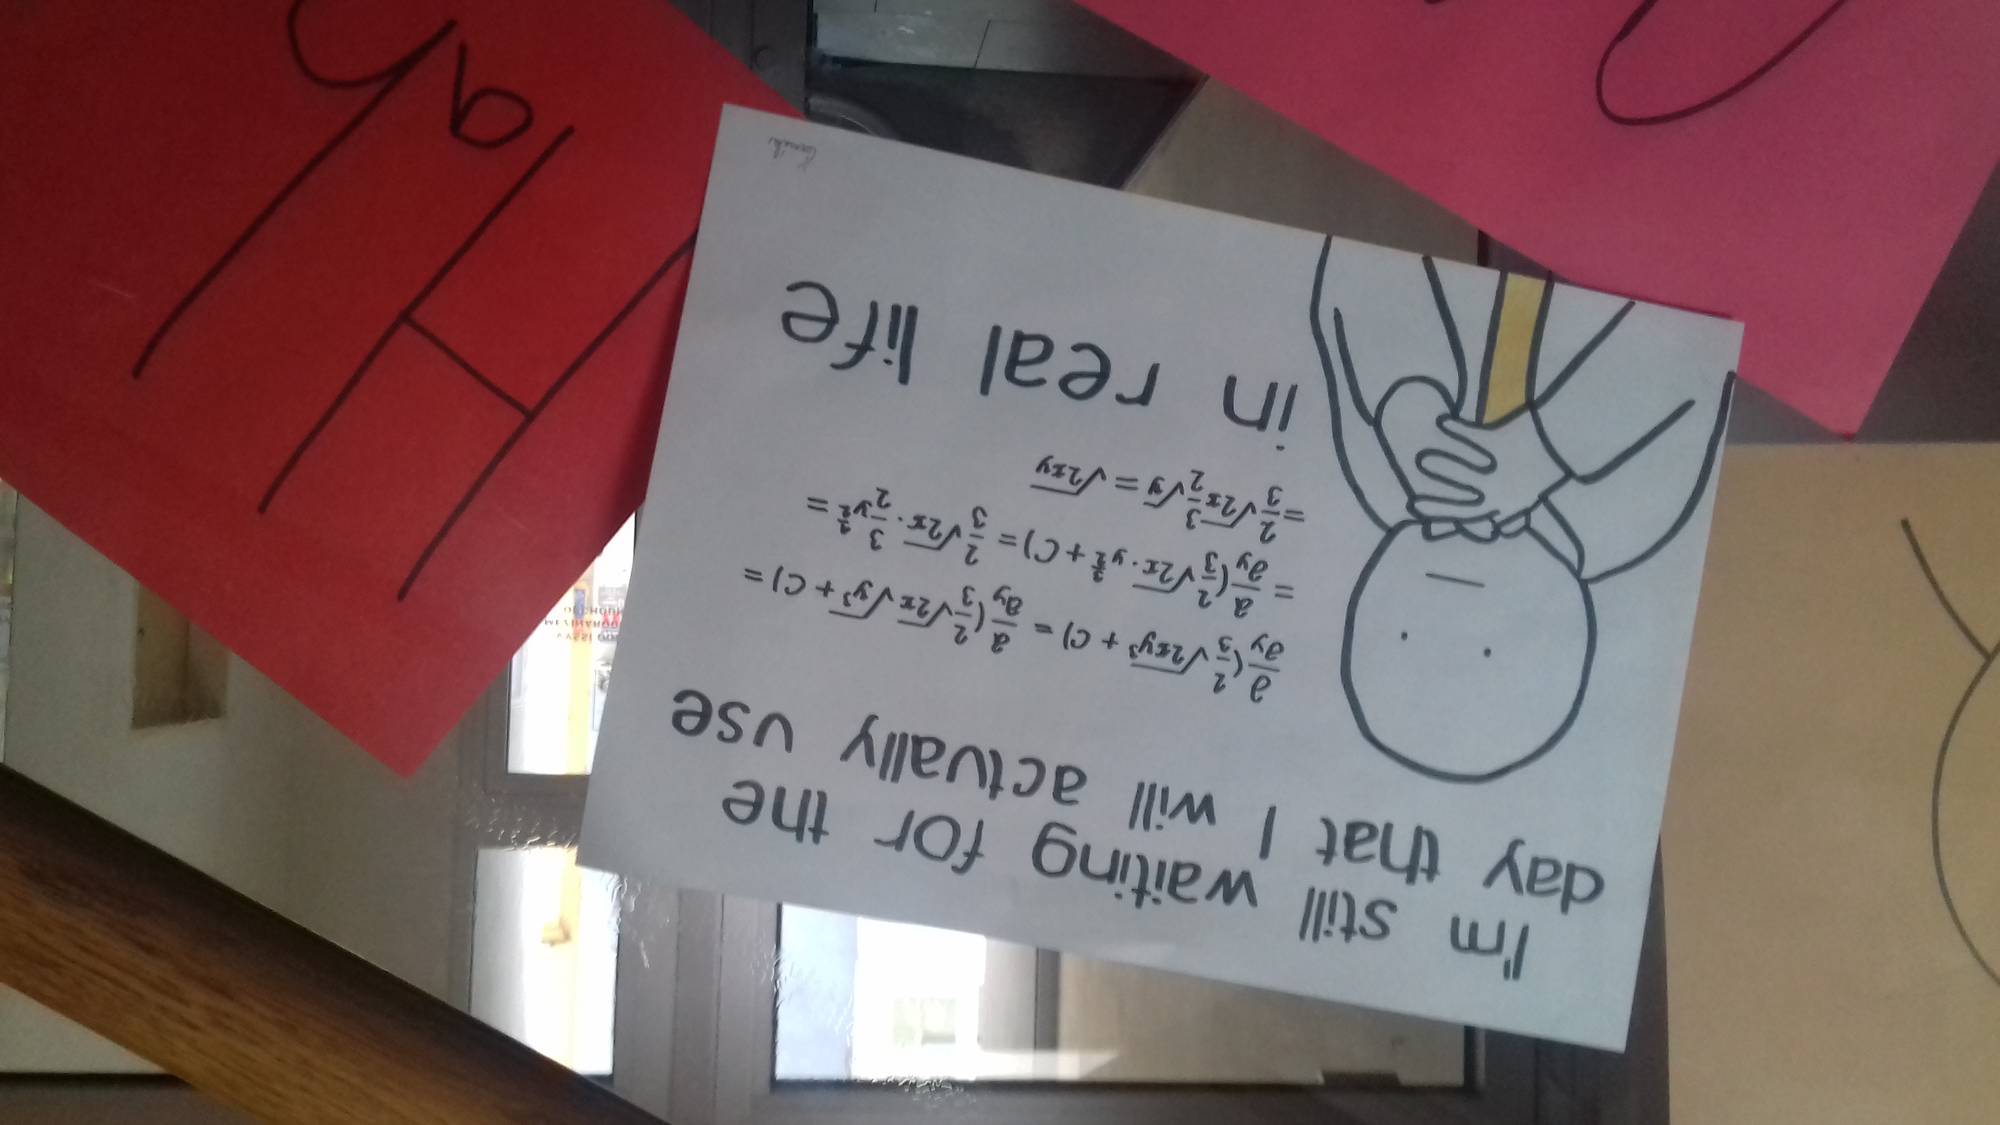 I'm still waiting for the
day that I will actually use
∂/∂y (2/3 √2xy³ + C) = ∂/∂y (2/3 √2x √y³ + C) =
= ∂/∂y (2/3 √2x · y^(3/2) + C) = 2/3 √2x · 3/2 y^(1/2) =
= 2/3 √2x 3/2 √y = √2xy
in real life
Hah